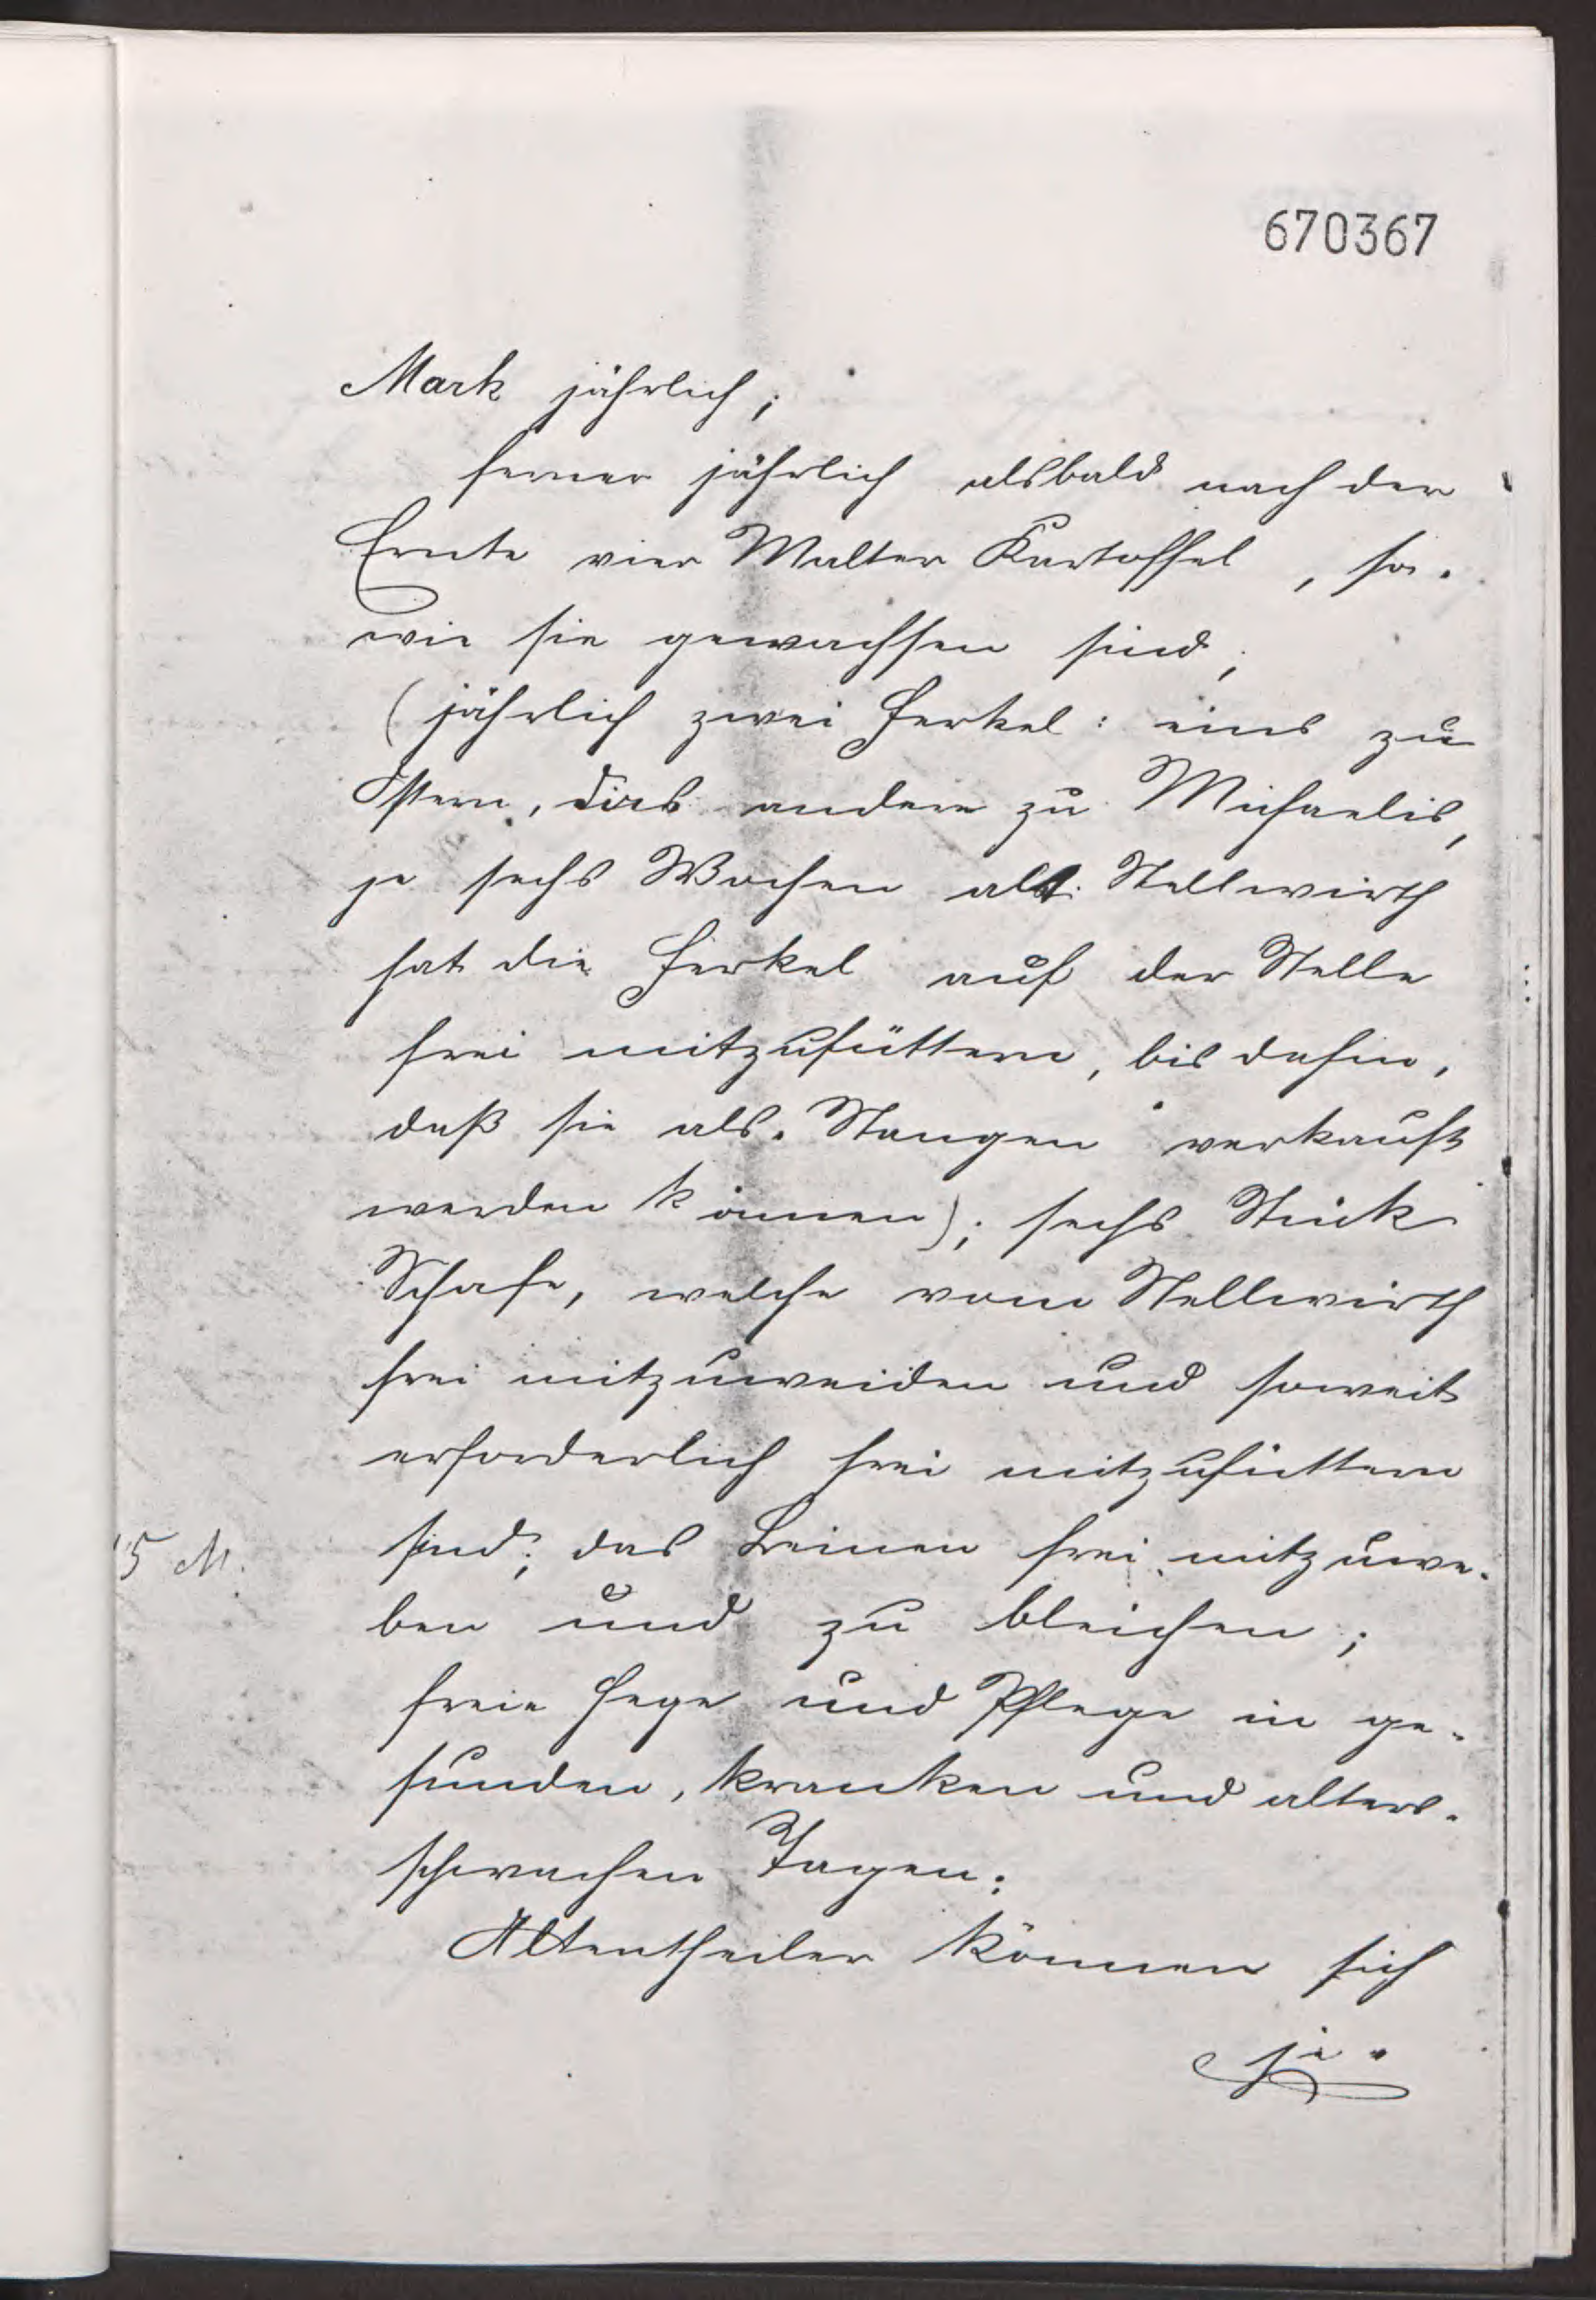 670367
Mark jährlich;
ferner jährlich alsbald nach der
Ernte vier Malter Kartoffel, so-
wie sie gewachsen sind;
(jährlich zwei Ferkel: eins zu
Ostern, das andere zu Michaelis,
je sechs Wochen alt. Stellwirth
hat die Ferkel auf der Stelle
frei mitzufüttern, bis dahin,
daß sie als Stangen verkauft
werden können); sechs Stück
Schafe, welche vom Stellwirth
frei mitzuweiden und soweit
erforderlich frei mitzufüttern
5 M. sind; das Leinen frei mitzuwe-
ben und zu bleichen;
freie Hege und Pflege in ge-
sunden, kranken und alters-
schwachen Tagen;
Altentheiler können sich
je-